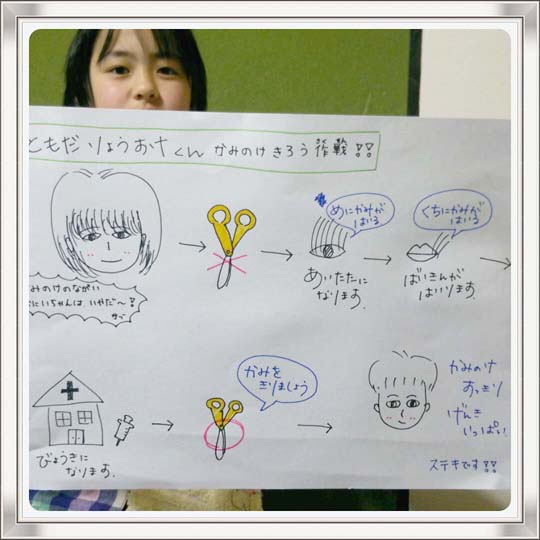 ともだ りょうおけくん かみのけきろう作戦!!
みのけのながい
にいちゃんは、いやだ〜!
めにかみが
はいる
あいたたに
なります。
くちにかみが
はいる
ばいきんが
はいります。
びょうきに
なります。
かみを
きりましょう
かみのけ
すっきり
げんき
いっぱい!
ステキです!!